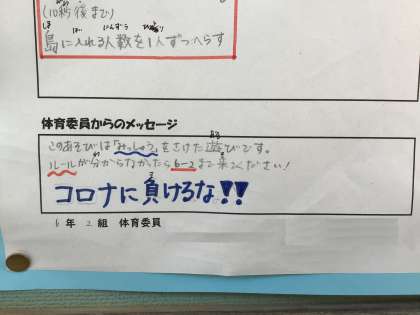 (10秒後まで)
島に入れる人数を1人ずつへらす
体育委員からのメッセージ
このあそびは「みっしゅう」をさけた遊びです。
ルールが分からなかったら6-2まで来てください!
コロナに負けるな!!
6年 2組 体育委員